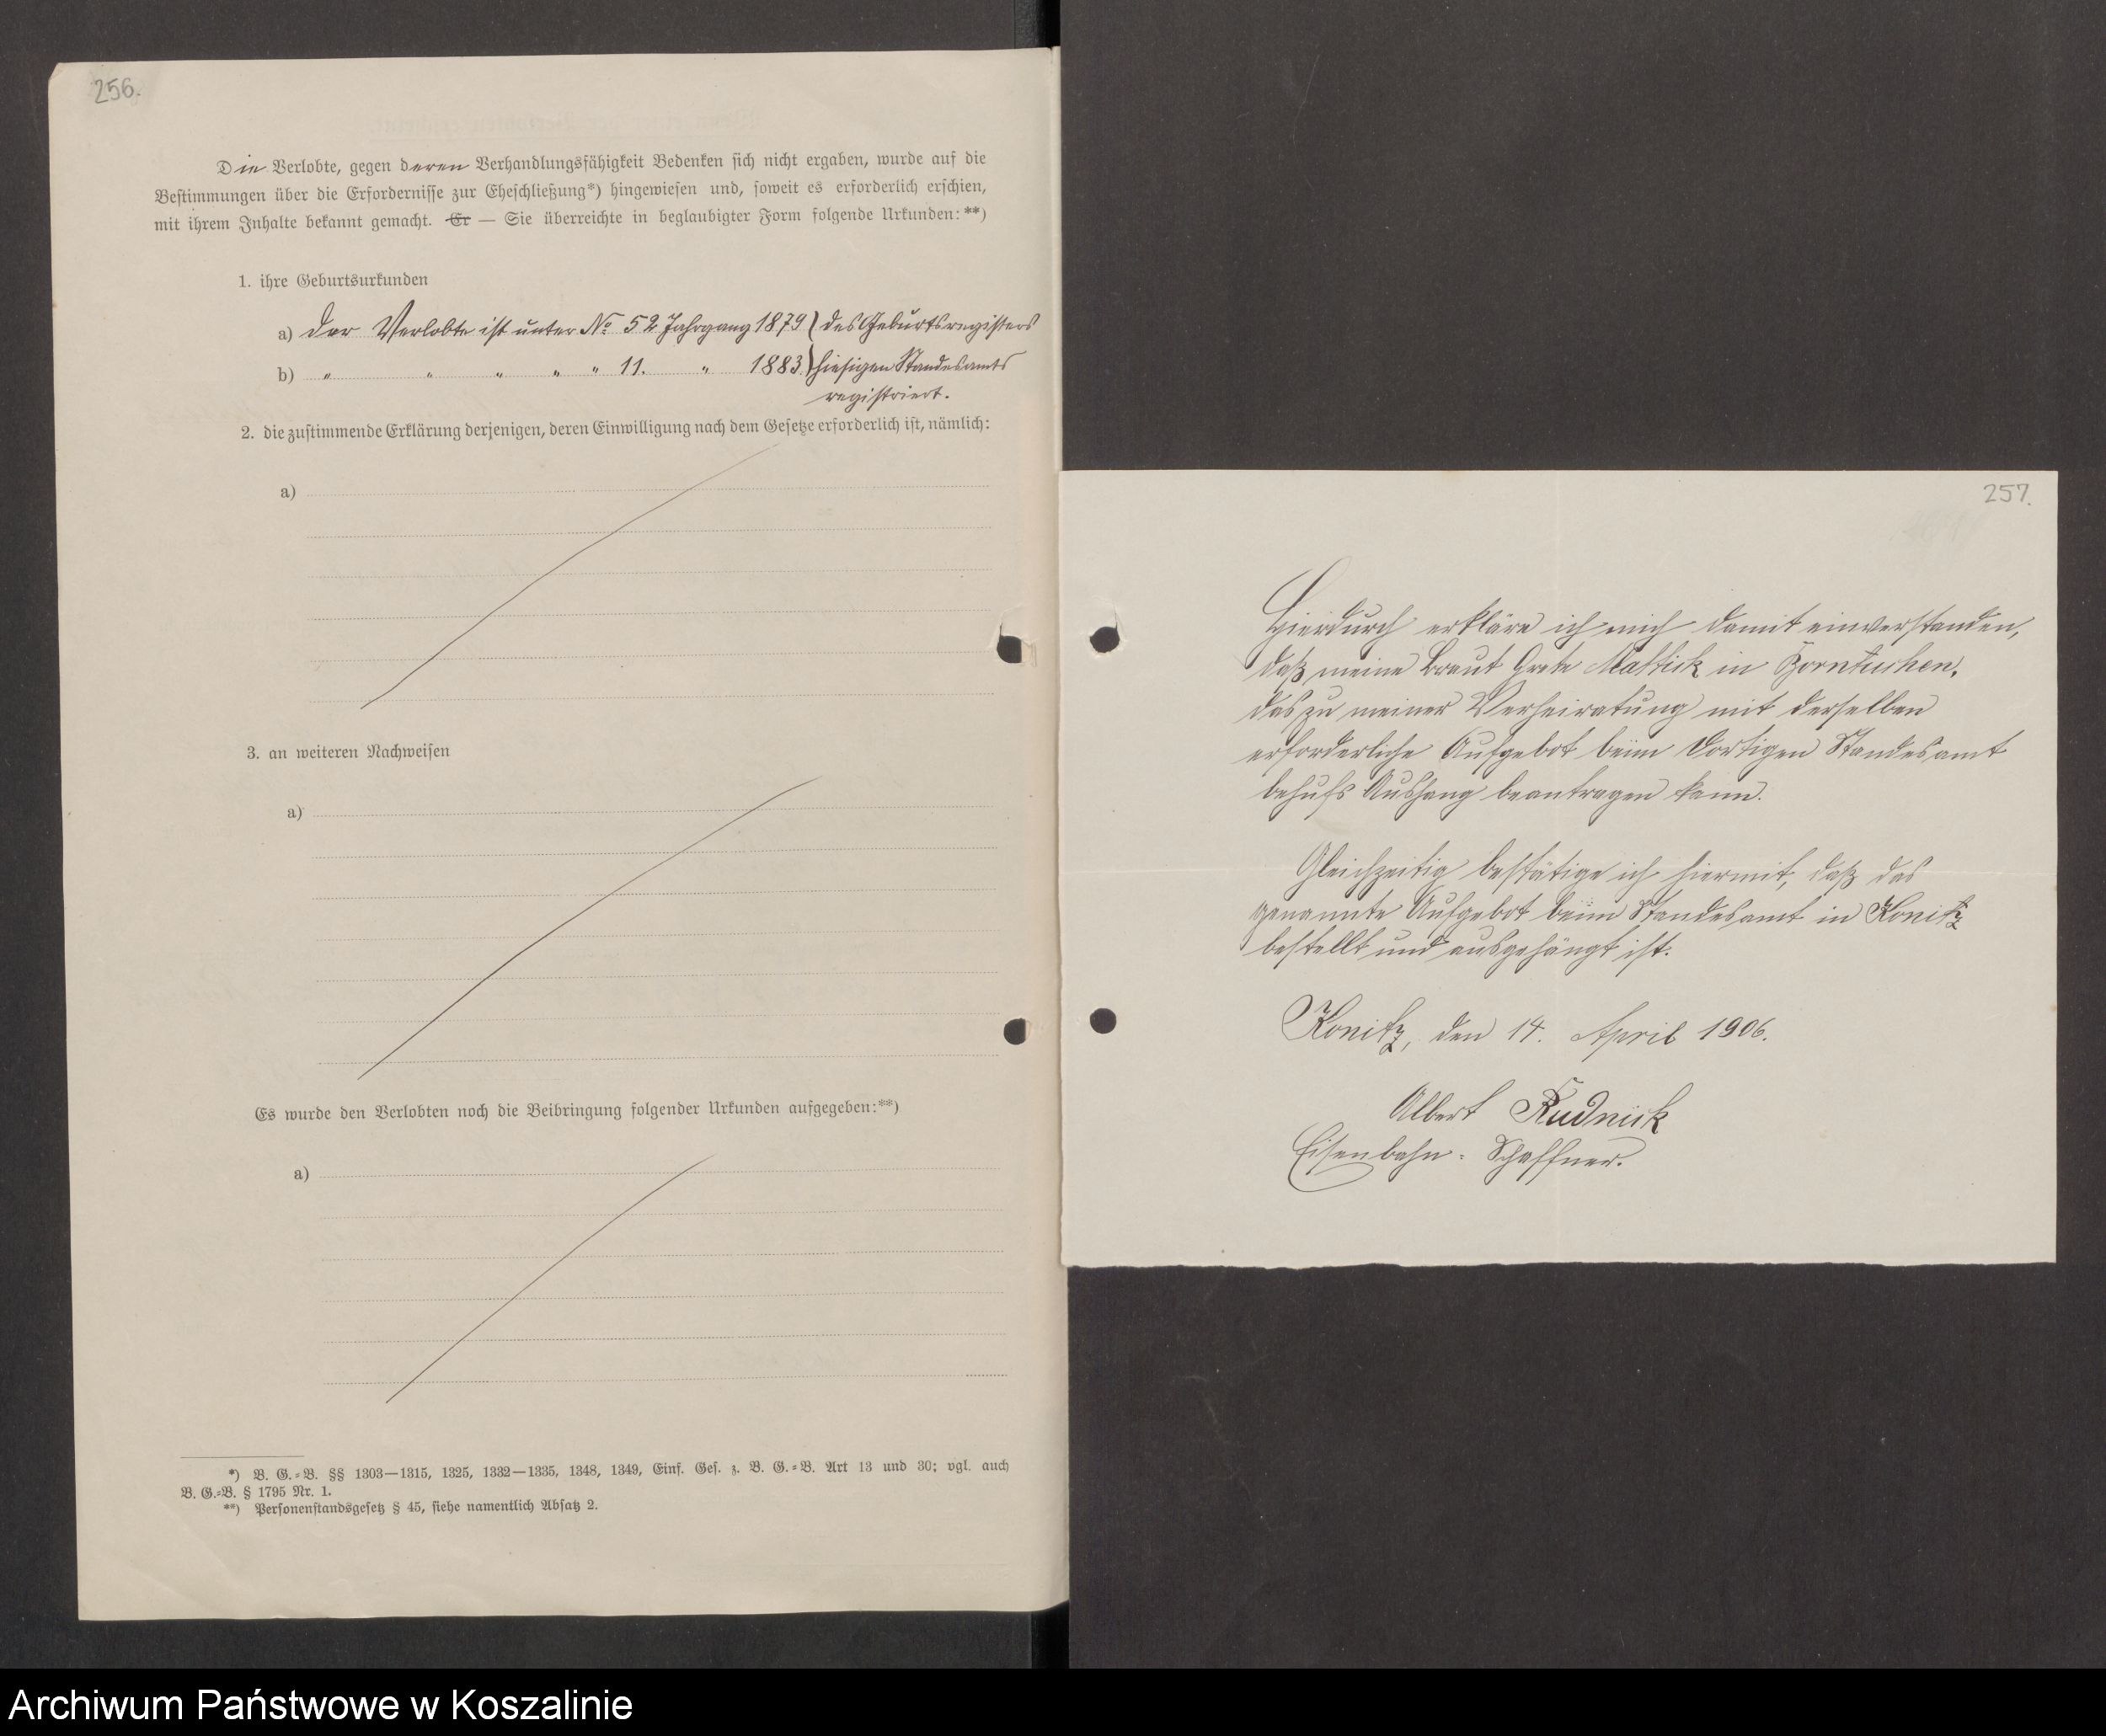 256.
Die Verlobte, gegen deren Verhandlungsfähigkeit Bedenken sich nicht ergaben, wurde auf die
Bestimmungen über die Erfordernisse zur Eheschließung*) hingewiesen und, soweit es erforderlich erschien,
mit ihrem Inhalte bekannt gemacht. Er — Sie überreichte in beglaubigter Form folgende Urkunden:**)
1. ihre Geburtsurkunden
a) der Verlobte ist unter No 52 Jahrgang 1879 ) des Geburtsregisters
b) " " " " " 11. " 1883 ) hiesigen Standesamts
registriert.
2. die zustimmende Erklärung derjenigen, deren Einwilligung nach dem Gesetze erforderlich ist, nämlich:
a)
3. an weiteren Nachweisen
a)
Es wurde den Verlobten noch die Beibringung folgender Urkunden aufgegeben:**)
a)
*) B. G.=B. §§ 1303—1315, 1325, 1332—1335, 1348, 1349, Einf. Ges. z. B. G.=B. Art 13 und 30; vgl. auch
B. G.=B. § 1795 Nr. 1.
**) Personenstandsgesetz § 45, siehe namentlich Absatz 2.
257.
Hierdurch erkläre ich mich damit einverstanden,
daß meine Braut Grete Mattick in Borntuchen,
das zu meiner Verheiratung mit derselben
erforderliche Aufgebot beim dortigen Standesamt
behufs Aushang beantragen kann.
Gleichzeitig bestätige ich hiermit, daß das
genannte Aufgebot beim Standesamt in Konitz
bestellt und ausgehängt ist.
Konitz, den 14. April 1906.
Albert Rudnick
Eisenbahn=Schaffner.
Archiwum Państwowe w Koszalinie